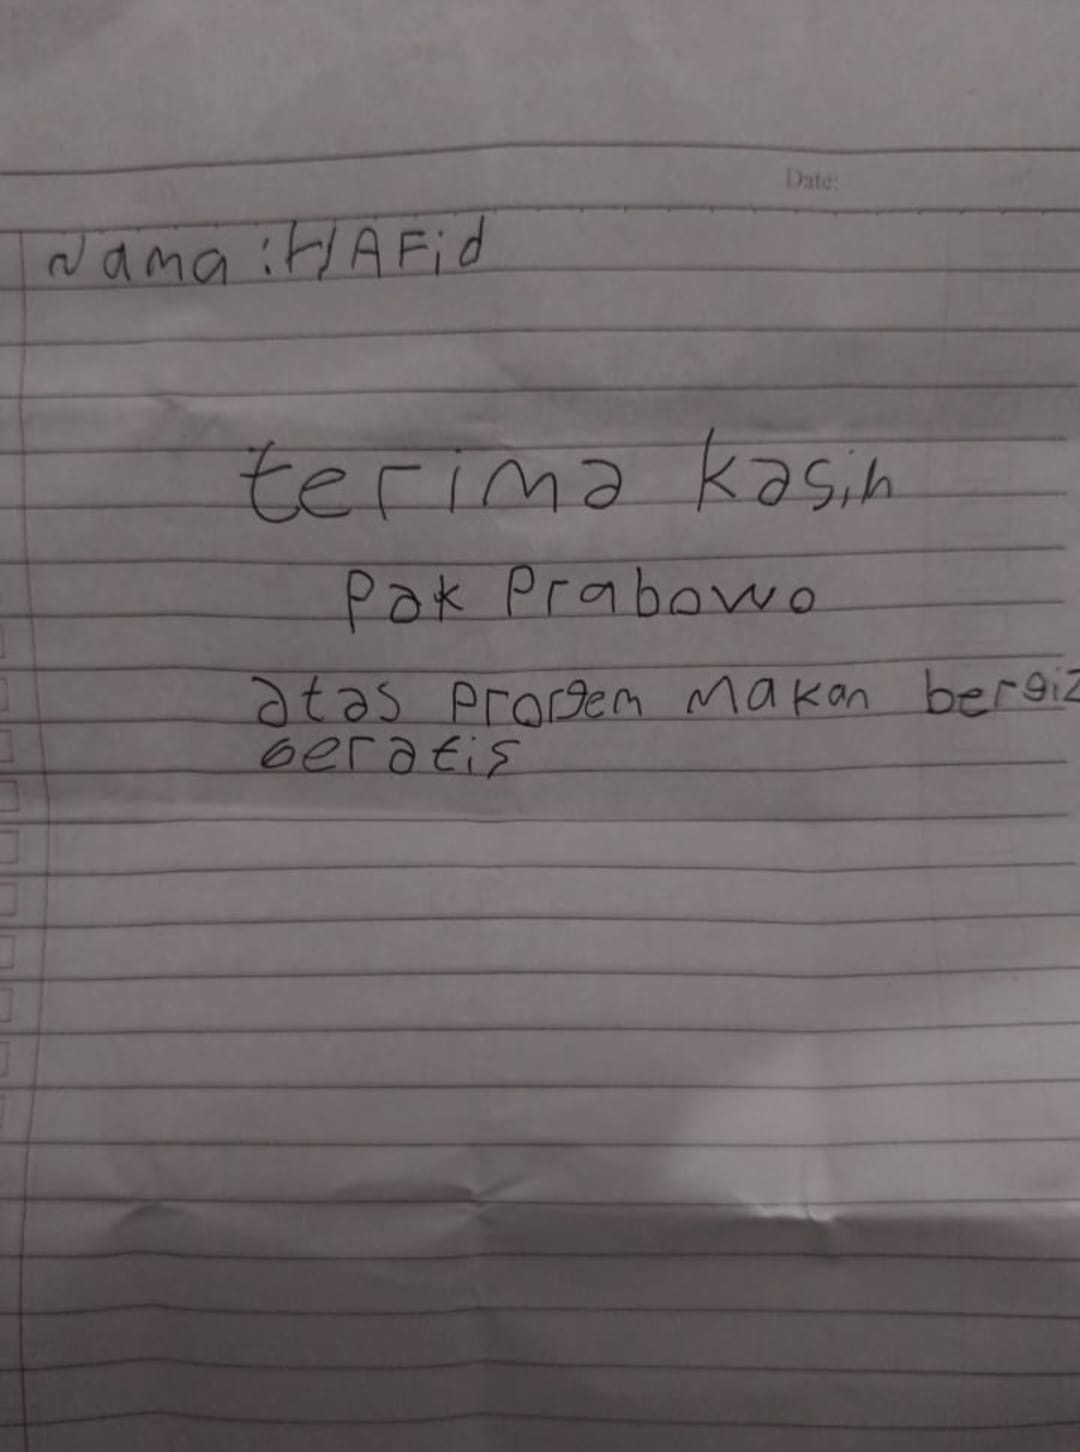 Date:
Nama : HAFid
terima kasih
Pak Prabowo
atas prorgem makan bergiz
geratis